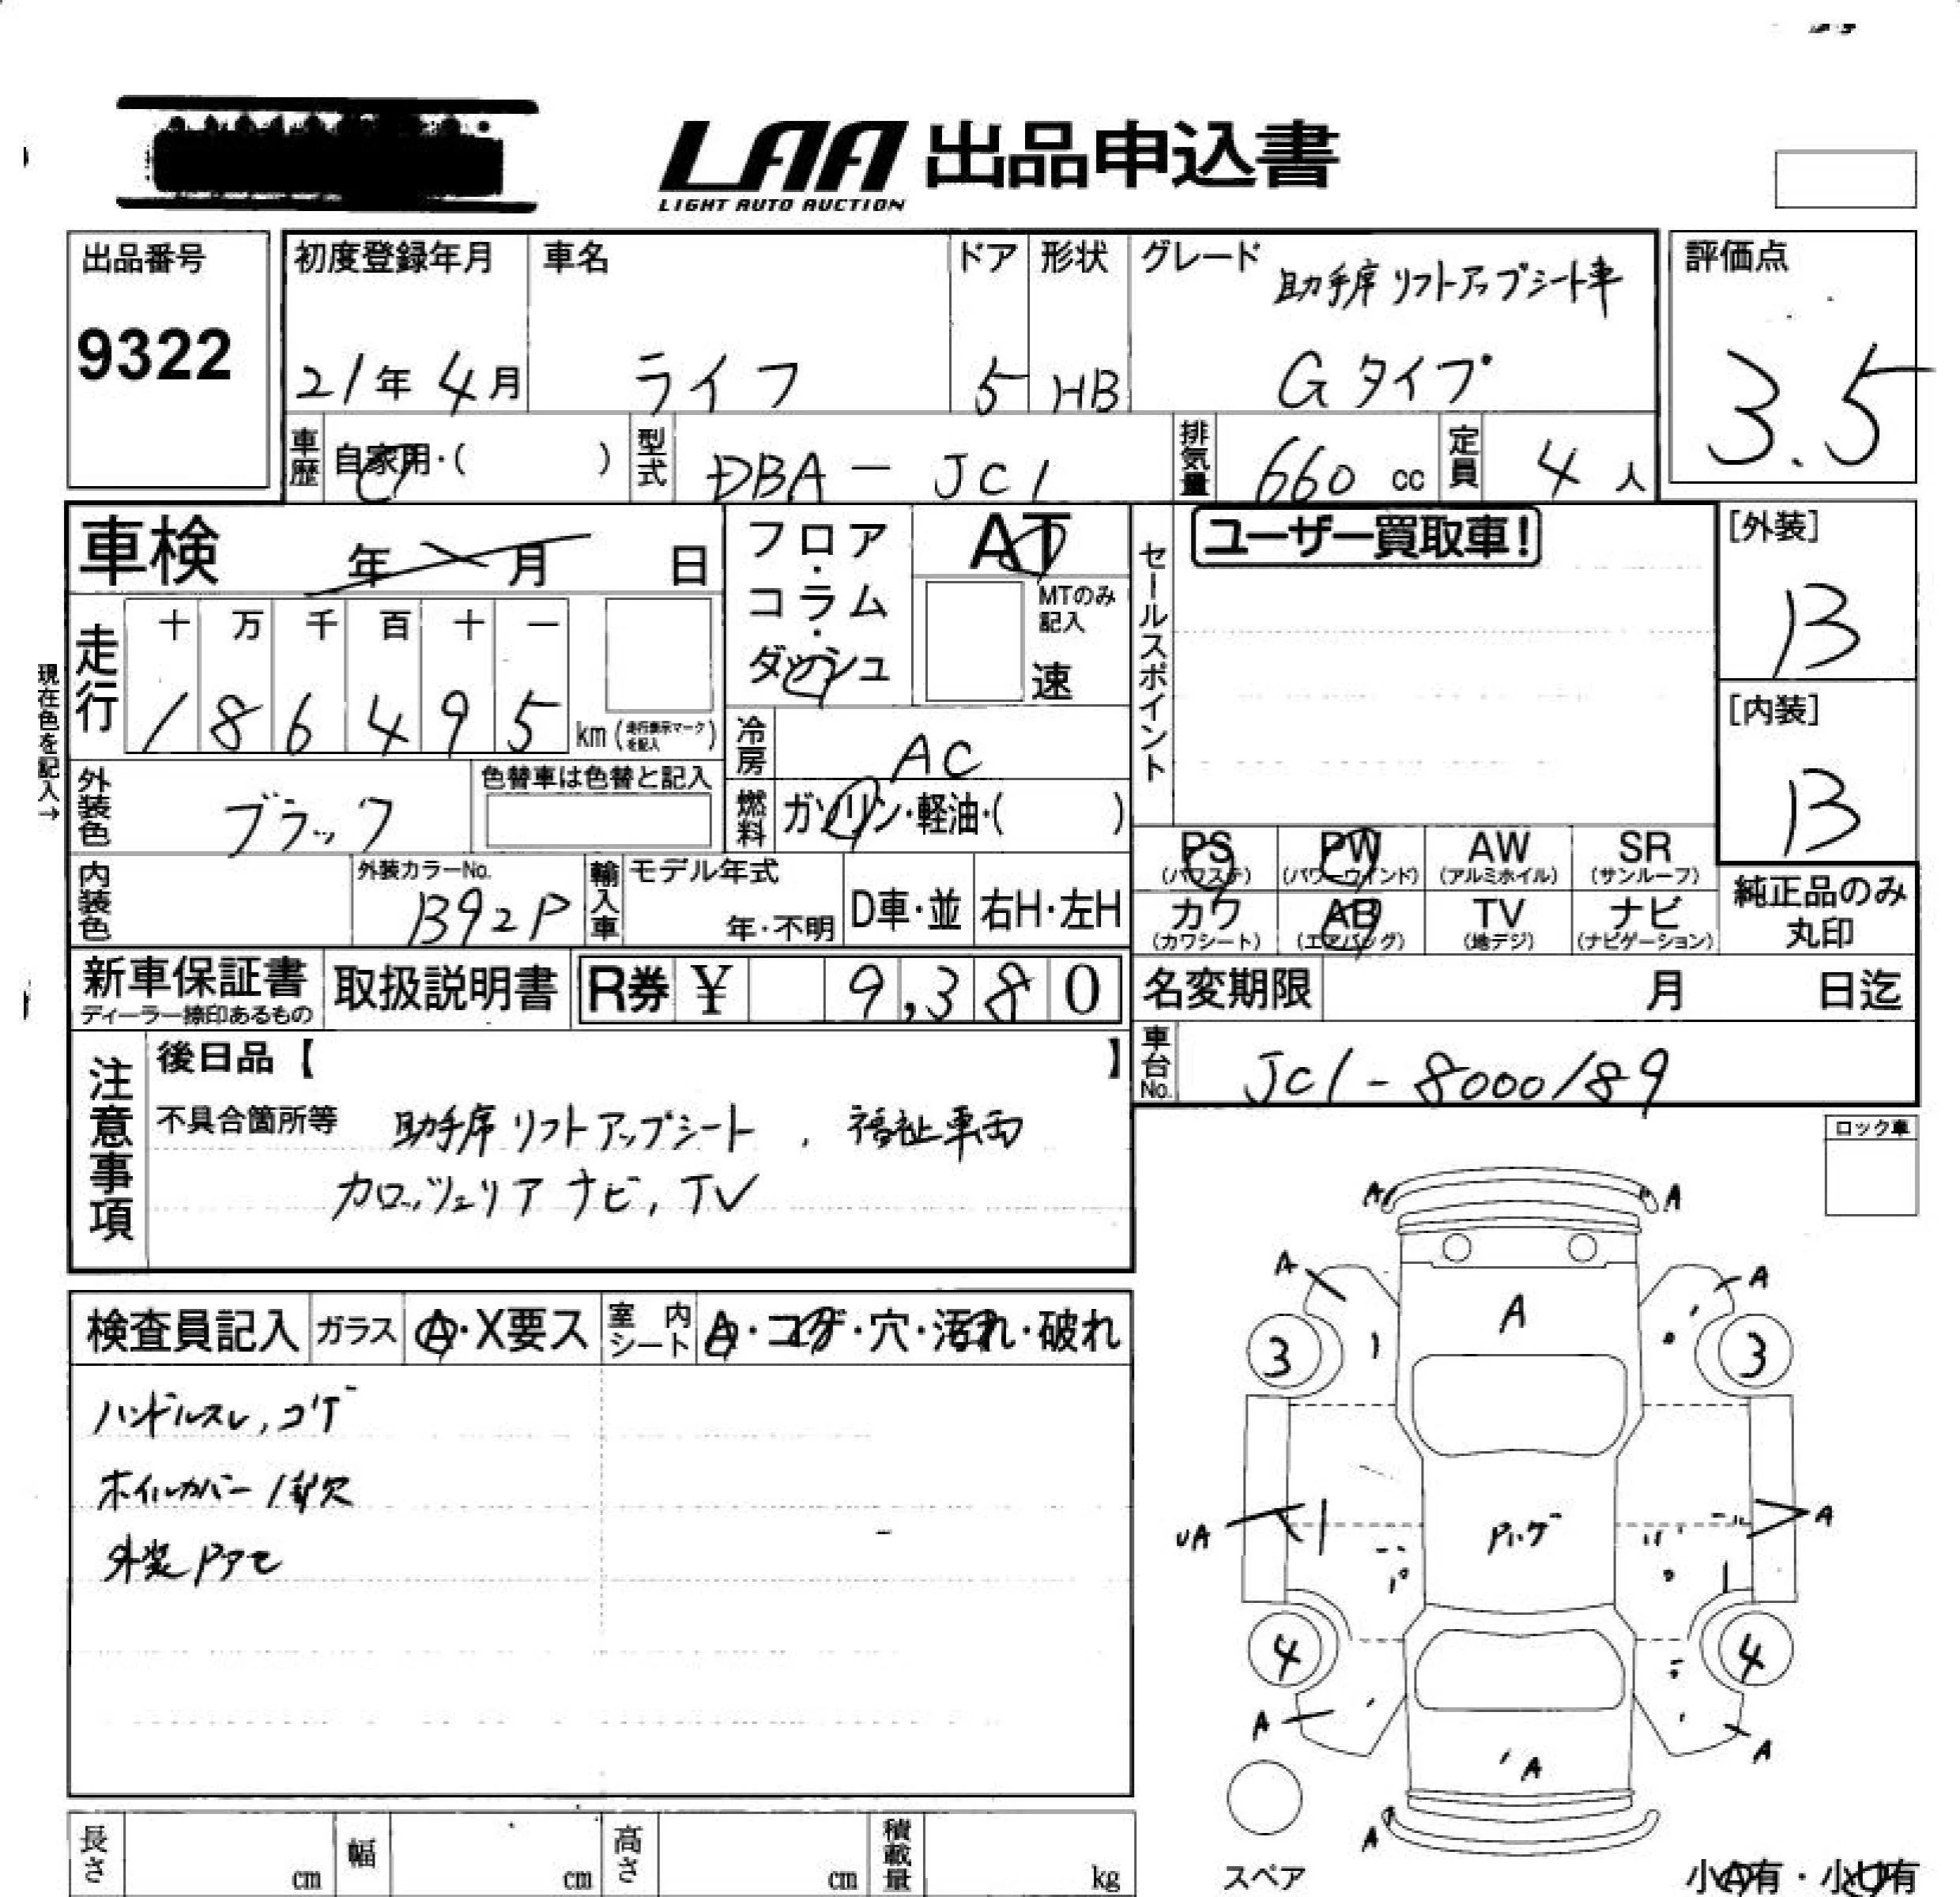 LAA 出品申込書
LIGHT AUTO AUCTION
出品番号
9322
初度登録年月
21年 4月
車名
ライフ
ドア
5
形状
HB
グレード
助手席リフトアップシート車
Gタイプ
評価点
3.5
車歴
自家用・( )
型式
DBA-JC1
排気量
660 cc
定員
4 人
車検 年 月 日
フロア・コラム・ダッシュ
AT
MTのみ記入
速
セールスポイント
ユーザー買取車!
[外装]
B
[内装]
B
現在色を記入→
走行
十 万 千 百 十 一
1 8 6 4 9 5 km (走行表示マークを記入)
冷房
AC
外装色
ブラック
色替車は色替と記入
燃料
ガソリン・軽油・( )
内装色
外装カラーNo.
B92P
輸入車
モデル年式
年・不明
D車・並
右H・左H
PS (パワステ)
PW (パワーウインド)
AW (アルミホイル)
SR (サンルーフ)
カワ (カワシート)
AB (エアバッグ)
TV (地デジ)
ナビ (ナビゲーション)
純正品のみ丸印
新車保証書
ディーラー捺印あるもの
取扱説明書
R券 ¥ 9,380
名変期限 月 日迄
車台No.
JC1-8000189
注意事項
後日品【 】
不具合箇所等 助手席リフトアップシート、福祉車両
カロッツェリアナビ,TV
ロック車
検査員記入
ガラス A・X要ス
室内シート A・コゲ・穴・汚れ・破れ
ハンドルスレ,コゲ
ホイルカバー1部欠
外装Pアセ
A A
A A
A
3 3
UA A
4 4
A A
A
A
スペア
長さ cm
幅 cm
高さ cm
積載量 kg
小A有・小U有